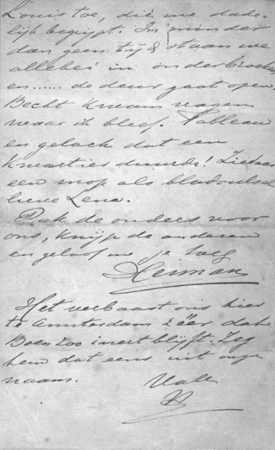 Louis toe, die me dade-
lijk begrijpt. In minder
dan geen tijd staan we
allebei in onderbroek
en...... de deur gaat open.
Becht kwam vragen
waar ik bleef. Tableau
en gelach dat een
kwartier duurde! Ziedaar
een mop als bladvulsel
lieve Lena.
Pak de oudees voor
ons, knijp de anderen
en geloof me je
Herman
Het verbaast ons hier
te Amsterdam zéér dat
Boen zoo inert blijft. Zeg
hem dat eens uit onze
naam.
Vale
H